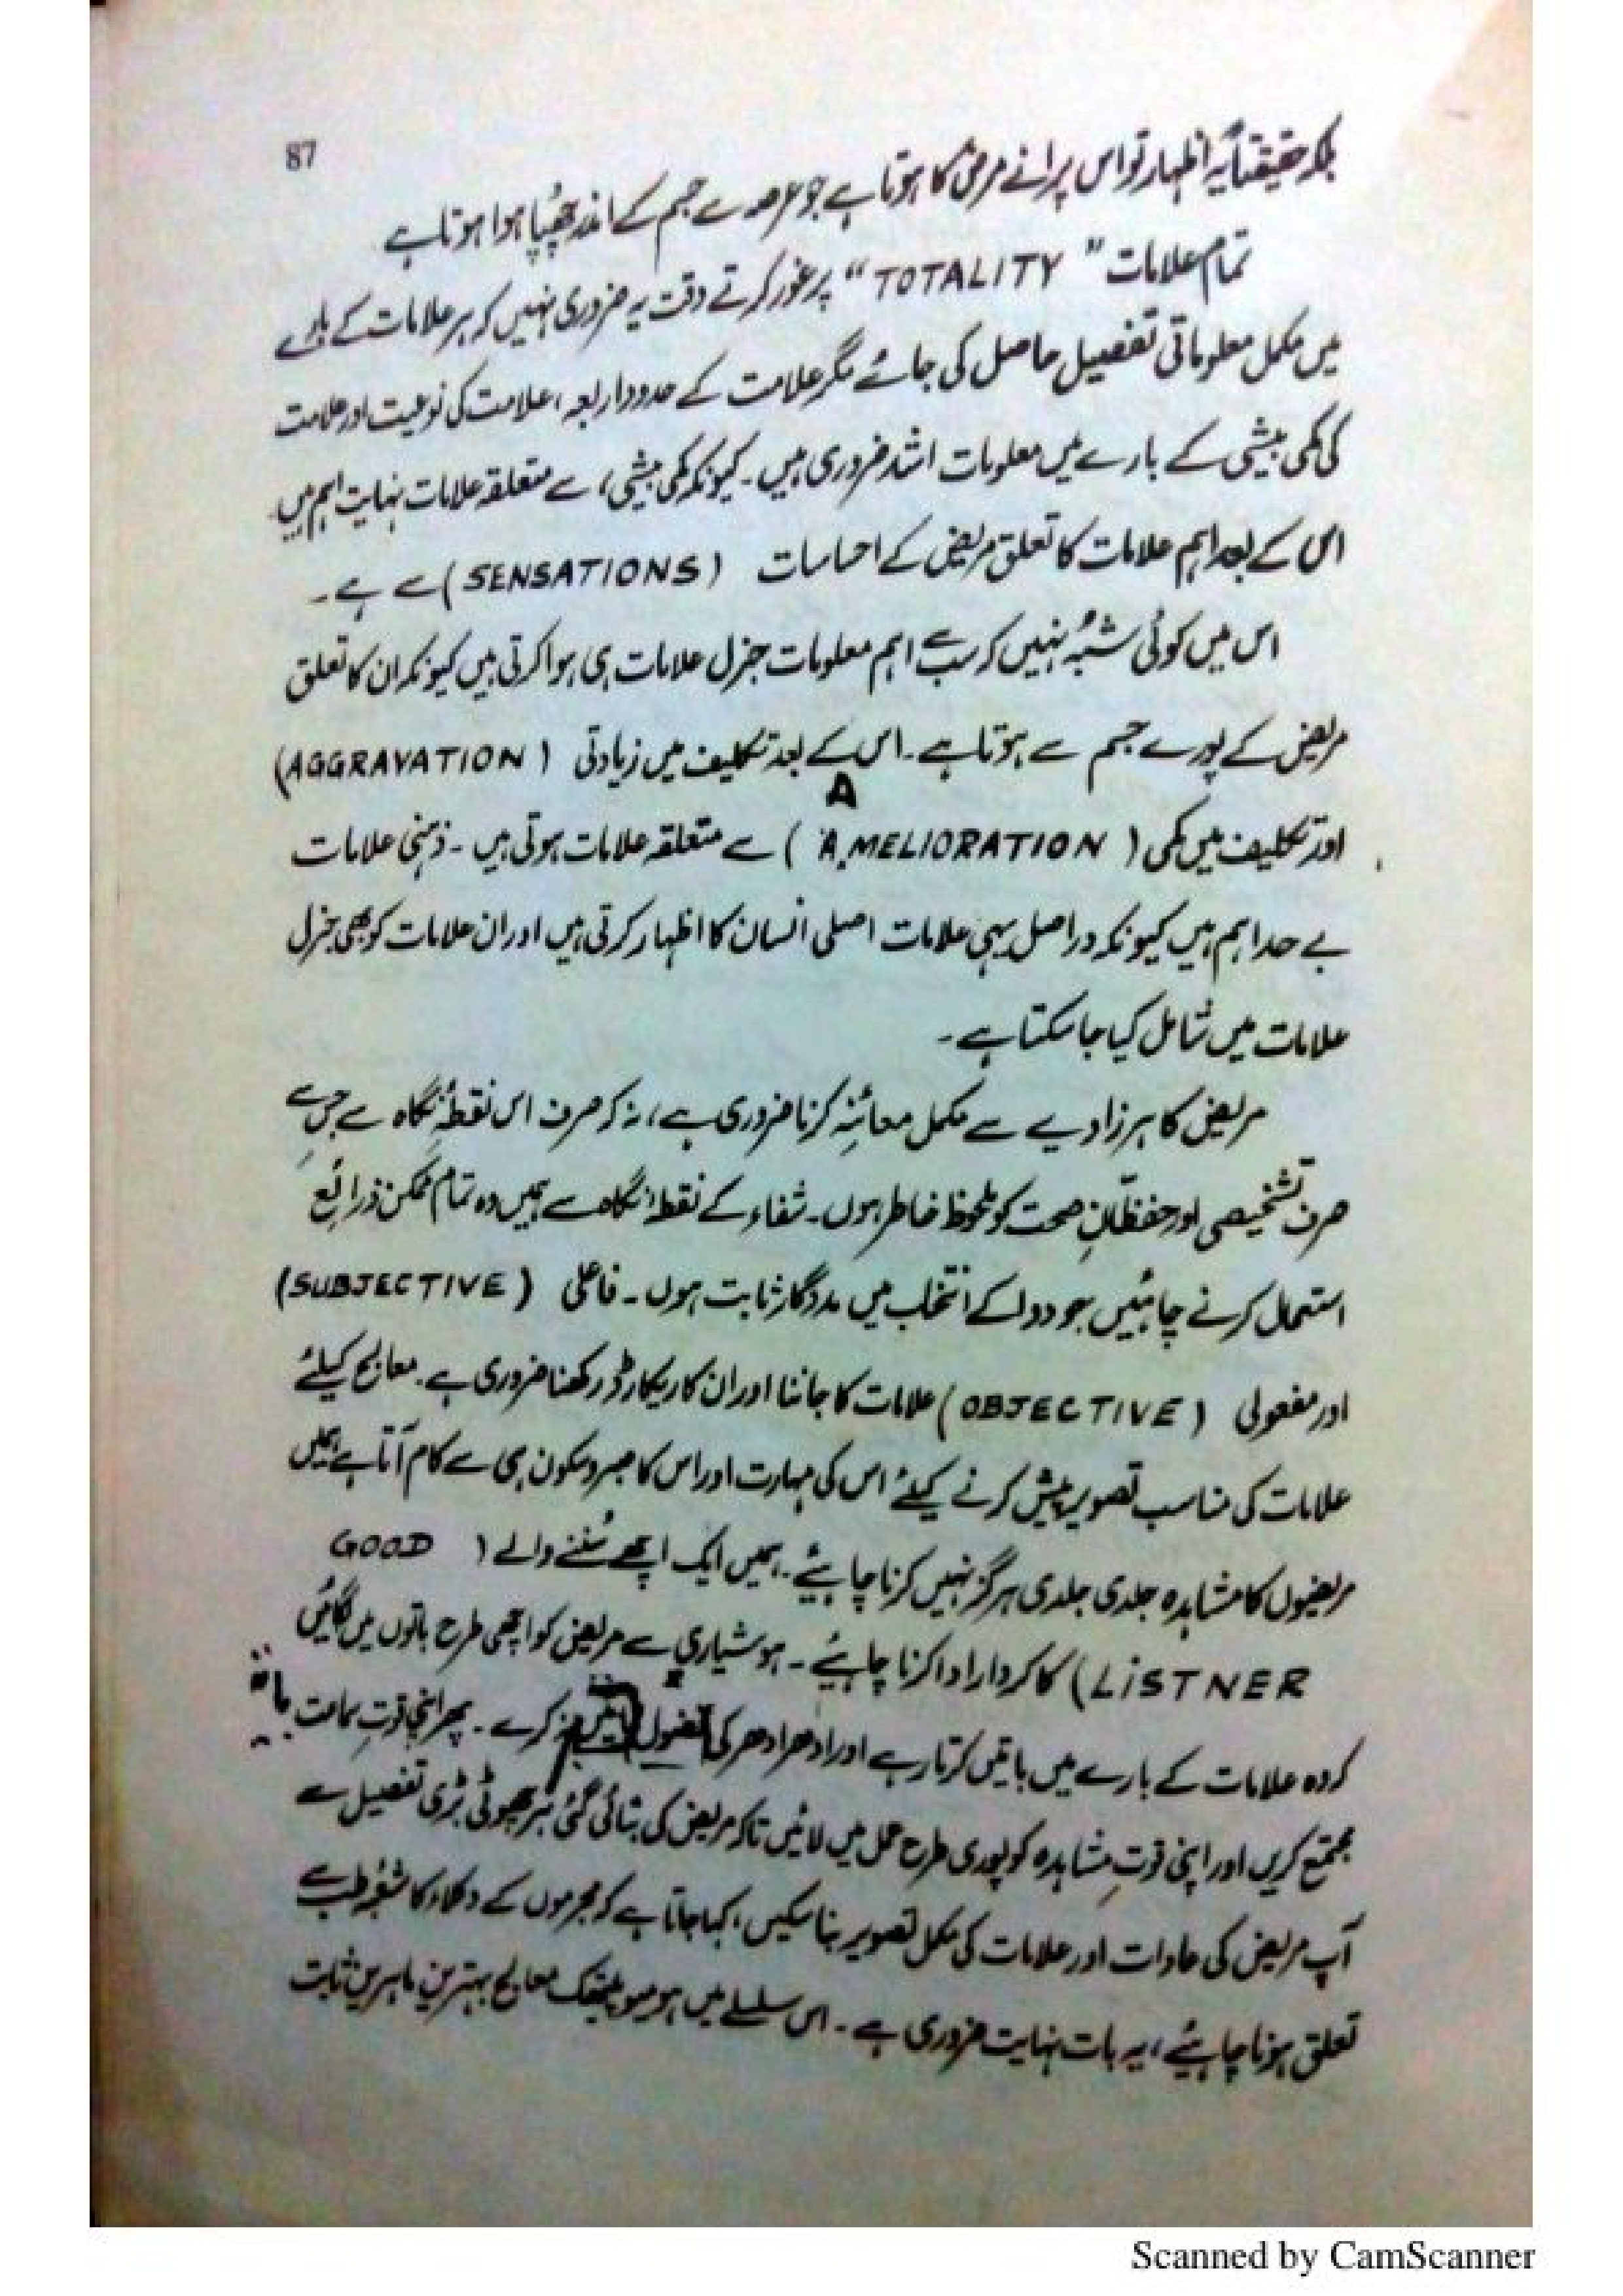 87
بلکہ حقیقتاً یہ اظہار تو اس پرانے مرض کا ہوتا ہے جو عرصہ سے جسم کے اندر چھپا ہوا ہوتا ہے
تمام علامات " TOTALITY " پر غور کرتے وقت یہ ضروری نہیں کہ ہر علامات کے بارے
میں مکمل معلوماتی تفصیل حاصل کی جائے مگر علامت کے حدود اربعہ، علامت کی نوعیت اور علامت
کی کمی بیشی کے بارے میں معلومات اشد ضروری ہیں۔ کیونکہ کمی بیشی، سے متعلقہ علامات نہایت اہم ہیں
اس کے بعد اہم علامات کا تعلق مریض کے احساسات (SENSATIONS) سے ہے۔
اس میں کوئی شبہ نہیں کہ سب سے اہم معلومات جنرل علامات ہی ہوا کرتی ہیں کیونکہ ان کا تعلق
مریض کے پورے جسم سے ہوتا ہے۔ اس کے بعد تکلیف میں زیادتی (AGGRAVATION)
A
اور تکلیف میں کمی (AMELIORATION) سے متعلقہ علامات ہوتی ہیں۔ ذہنی علامات
بے حد اہم ہیں کیونکہ دراصل یہی علامات اصلی انسان کا اظہار کرتی ہیں اور ان علامات کو بھی جنرل
علامات میں شامل کیا جا سکتا ہے۔
مریض کا ہر زاویے سے مکمل معائنہ کرنا ضروری ہے، نہ کہ صرف اس نقطۂ نگاہ سے جس سے
صرف تشخیصی اور حفظانِ صحت کو ملحوظ خاطر ہوں۔ شفاء کے نقطۂ نگاہ سے ہمیں وہ تمام ممکن ذرائع
استعمال کرنے چاہئیں جو دوا کے انتخاب میں مددگار ثابت ہوں۔ فاعلی (SUBJECTIVE)
اور مفعولی (OBJECTIVE) علامات کا جاننا اور ان کا ریکارڈ رکھنا ضروری ہے۔ معالج کیلئے
علامات کی مناسب تصویر پیش کرنے کیلئے اس کی مہارت اور اس کا صبر و سکون ہی سے کام آتا ہے ہمیں
مریضوں کا مشاہدہ جلدی جلدی ہرگز نہیں کرنا چاہیئے۔ ہمیں ایک اچھے سننے والے ( GOOD
LiSTNER) کا کردار ادا کرنا چاہیئے۔ ہوشیاری سے مریض کو اچھی طرح باتوں میں لگائیں
کہ وہ علامات کے بارے میں باتیں کرتا رہے اور ادھر ادھر کی فضول نہ کرے۔ پھر اپنی قوتِ سماعت
مجتمع کریں اور اپنی قوتِ مشاہدہ کو پوری طرح عمل میں لائیں تاکہ مریض کی بتائی گئی ہر چھوٹی بڑی تفصیل سے
آپ مریض کی عادات اور علامات کی مکمل تصویر بنا سکیں، کہا جاتا ہے کہ مجرموں کے وکلاء کا شعبہ طب سے
تعلق ہونا چاہیئے، یہ بات نہایت ضروری ہے۔ اس سلسلے میں ہومیوپیتھک معالج بہترین ماہرین ثابت
Scanned by CamScanner